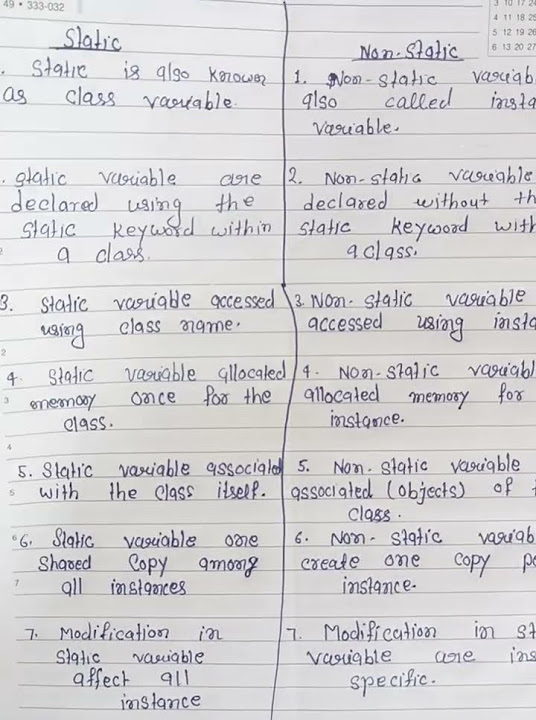 49 • 333-032
3 10 17 24
4 11 18 25
5 12 19 26
6 13 20 27
Static
. Static is also known
as class variable.
. static variable are
declared using the
static keyword within
a class.
3. Static variable accessed
using class name.
4. Static variable allocated
memory once for the
class.
5. Static variable associated
with the class itself.
6. Static variable one
Shared Copy among
all instances
7. Modification in
static variable
affect all
instance
Non-Static
1. Non-static variab
also called insta
variable.
2. Non-static variable
declared without th
static keyword with
a class.
3. Non-static variable
accessed using insta
4. Non-static variabl
allocated memory for
instance.
5. Non-static variable
associated (objects) of
class.
6. Non-static variab
create one copy pe
instance.
7. Modification in st
variable are ins
specific.